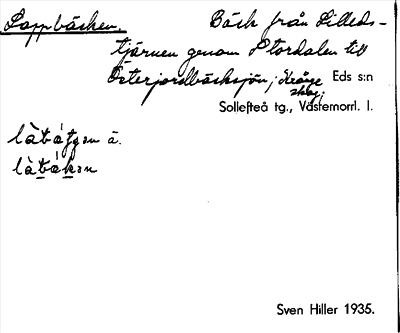 Lappbäcken.
Bäck från Lilleds-
tjärnen genom Stordalen till
Österjordbäcksjön; Krånge Eds s:n
skog;
Sollefteå tg., Västernorrl. l.
làbátjɡen ä.
làbáken
Sven Hiller 1935.